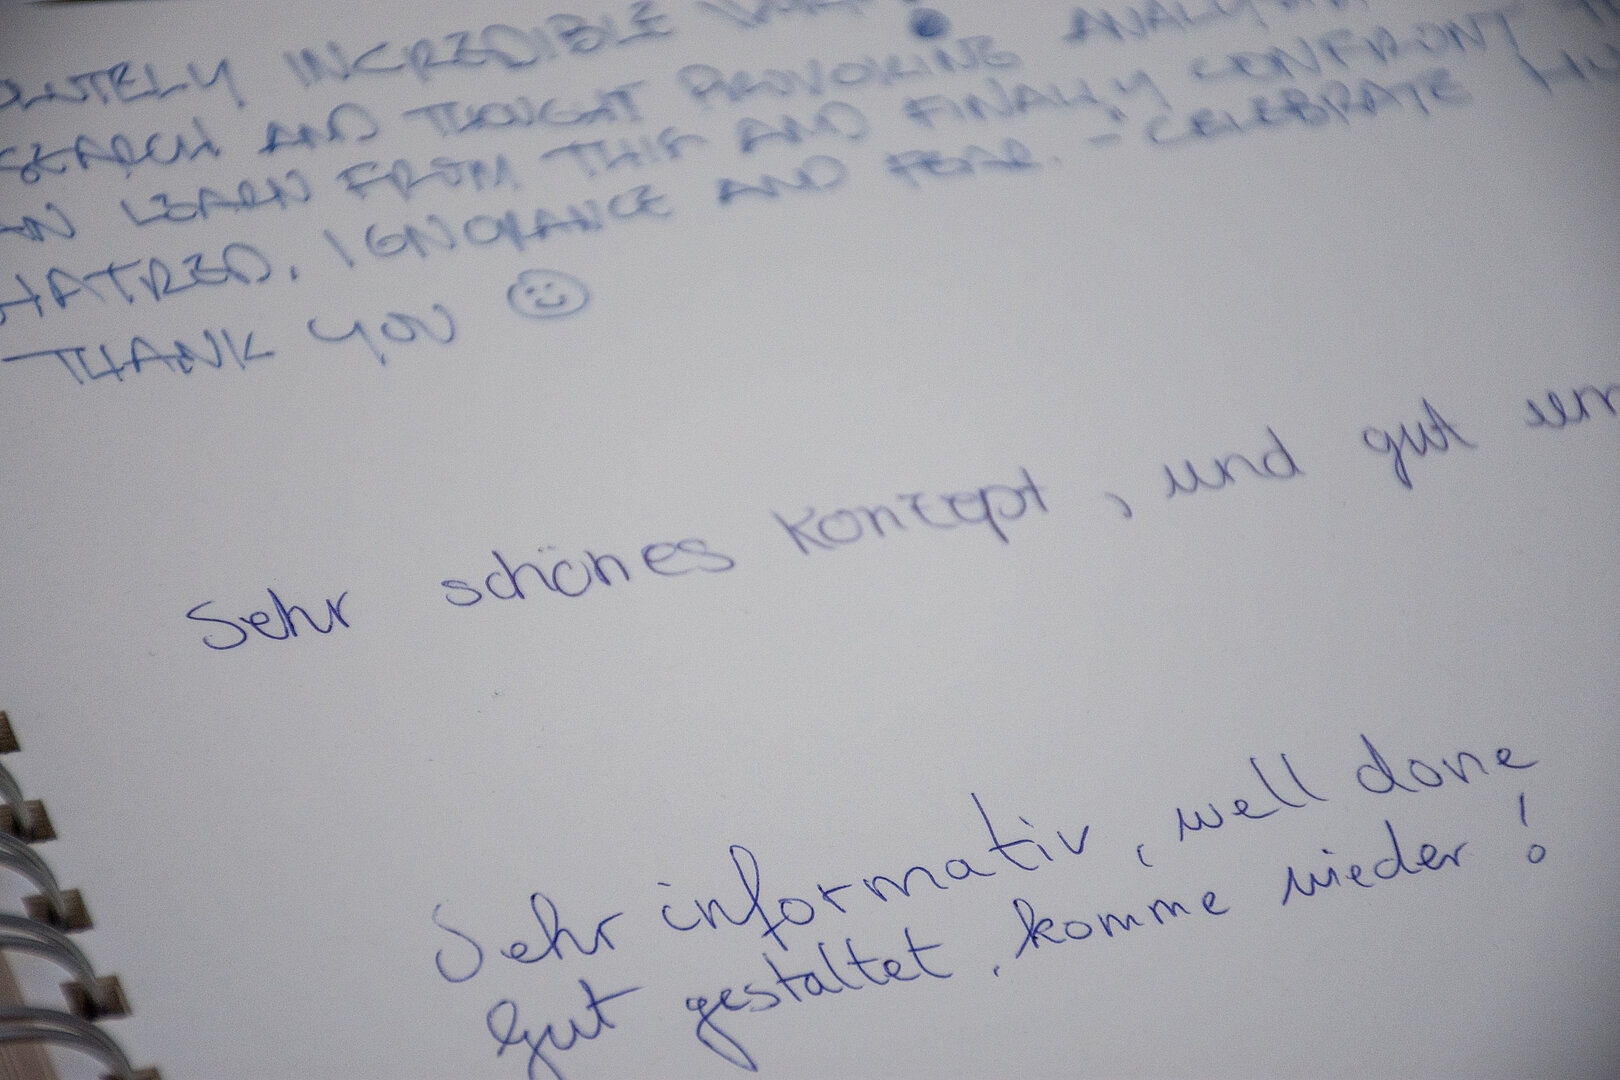 OLUTELY INCREDIBLE
SEARCH AND THOUGHT PROVOKING
AN LEARN FROM THIS AND FINALLY CONFRONT
HATRED, IGNORANCE AND FEAR. - CELEBRATE
THANK YOU ☺
Sehr schönes Konzept, und gut um
Sehr informativ, well done
Gut gestaltet, komme wieder!